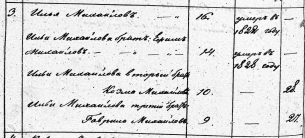 3. Илья Михайловъ — „ 16. умеръ въ
1824 году
Ильи Михайлова братъ Ермилъ
Михайловъ. — „ 14. умеръ въ
1828 году
Ильи Михайлова вторый братъ
Козма Михайловъ 10. — 28.
Ильи Михайлова третій братъ
Гаврило Михайловъ 9. — 27.